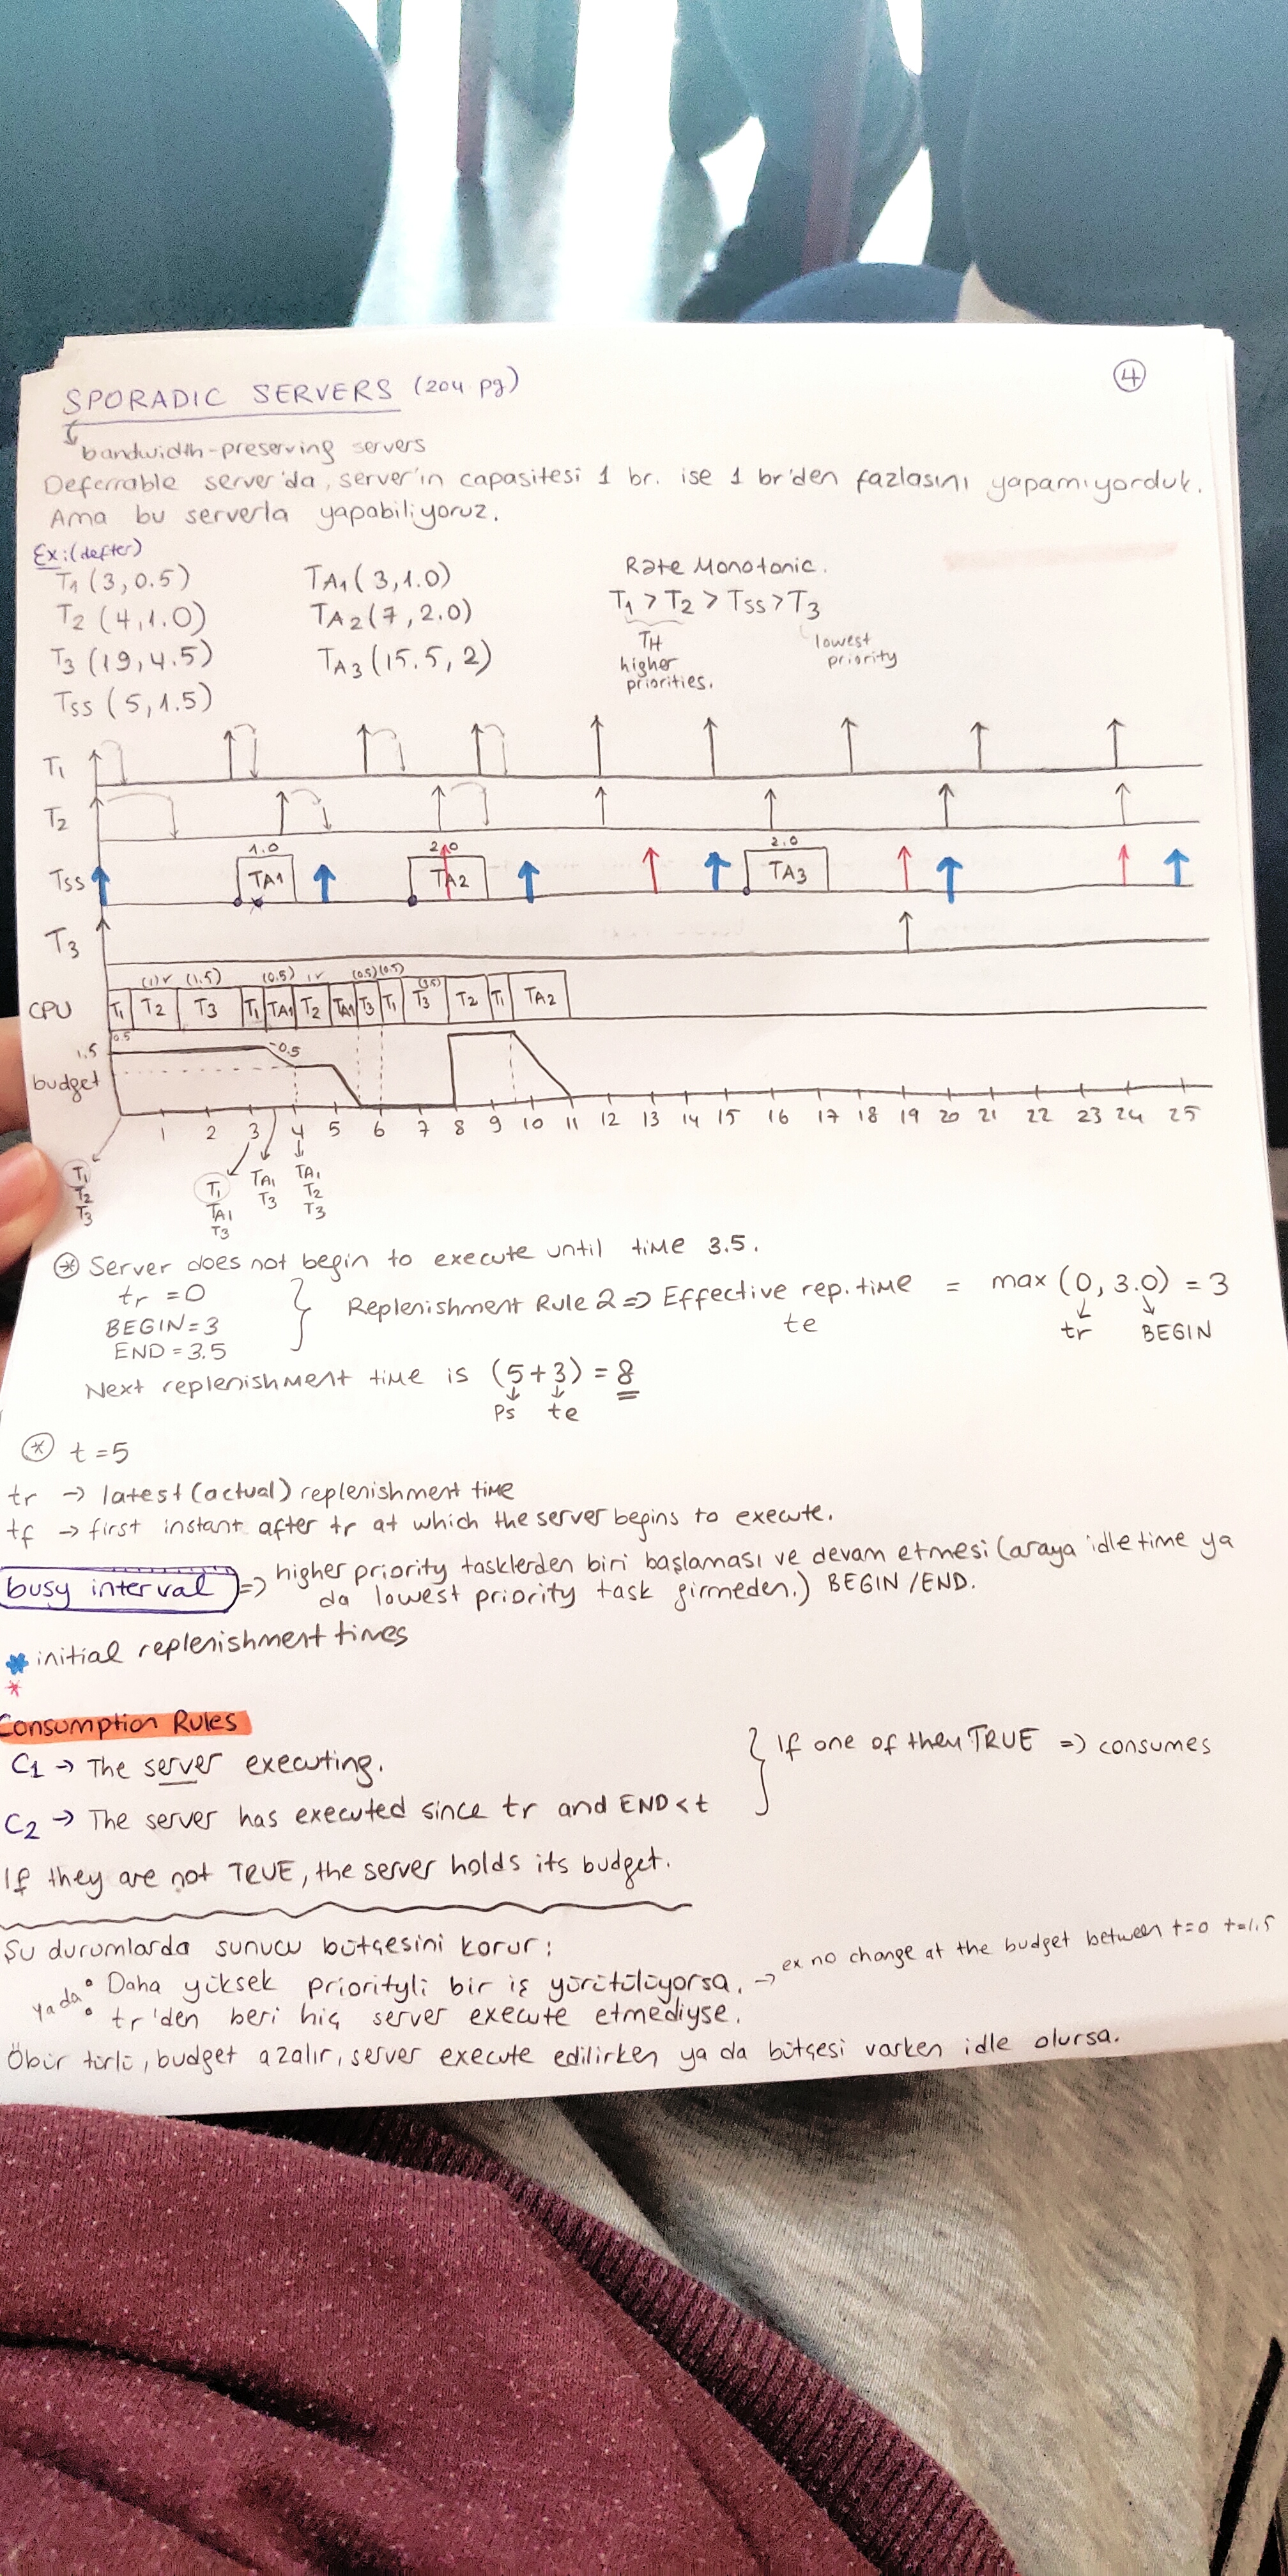 SPORADIC SERVERS (204 pg)
4
bandwidth-preserving servers
Deferrable server'da, server'ın capasitesi 1 br. ise 1 br'den fazlasını yapamıyorduk.
Ama bu serverla yapabiliyoruz.
Ex:(defter)
T1 (3, 0.5) TA1 (3, 1.0) Rate Monotonic.
T2 (4, 1.0) TA2 (7, 2.0) T1 > T2 > TSS > T3
T3 (19, 4.5) TA3 (15.5, 2) TH higher priorities. lowest priority
TSS (5, 1.5)
T1
T2
1.0 2.0 2.0
TSS TA1 TA2 TA3
T3
(1) (1.5) (0.5) (0.5) (0.5)
CPU T1 T2 T3 T1 TA1 T2 TA1 T3 T1 T3 T2 T1 TA2
0.5
1.5 0.5
budget
1 2 3 4 5 6 7 8 9 10 11 12 13 14 15 16 17 18 19 20 21 22 23 24 25
T1 T1 TA1 TA1
T2 TA1 T3 T2
T3 T3 T3
* Server does not begin to execute until time 3.5.
tr = 0
BEGIN = 3
END = 3.5
} Replenishment Rule 2 => Effective rep. time = max (0, 3.0) = 3
te tr BEGIN
Next replenishment time is (5+3) = 8
Ps te
* t = 5
tr → latest (actual) replenishment time
tf → first instant after tr at which the server begins to execute.
busy interval => higher priority tasklerden biri başlaması ve devam etmesi (araya idle time ya
da lowest priority task girmeden.) BEGIN / END.
* initial replenishment times
*
Consumption Rules
C1 → The server executing.
C2 → The server has executed since tr and END < t
} If one of them TRUE => consumes
If they are not TRUE, the server holds its budget.
Şu durumlarda sunucu bütçesini korur:
• Daha yüksek priorityli bir iş yürütülüyorsa. → ex no change at the budget between t=0 t=1.5
ya da • tr'den beri hiç server execute etmediyse.
Öbür türlü, budget azalır, server execute edilirken ya da bütçesi varken idle olursa.